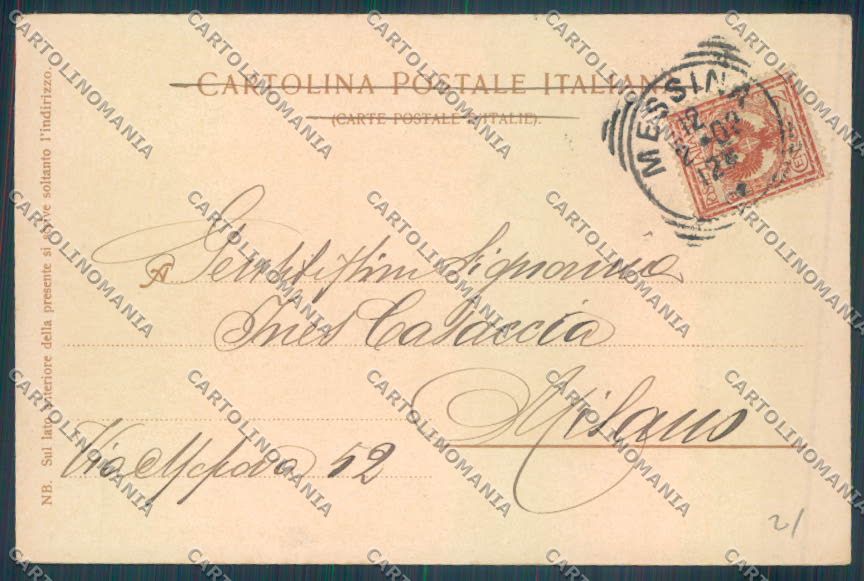 CARTOLINA POSTALE ITALIANA
(CARTE POSTALE D'ITALIE).
MESSINA
12
2 02
12
A Gentilissima Signorina
Ines Casaccia
Milano
Via 52
NB. Sul lato anteriore della presente si scrive soltanto l'indirizzo.
21
CARTOLINOMANIA